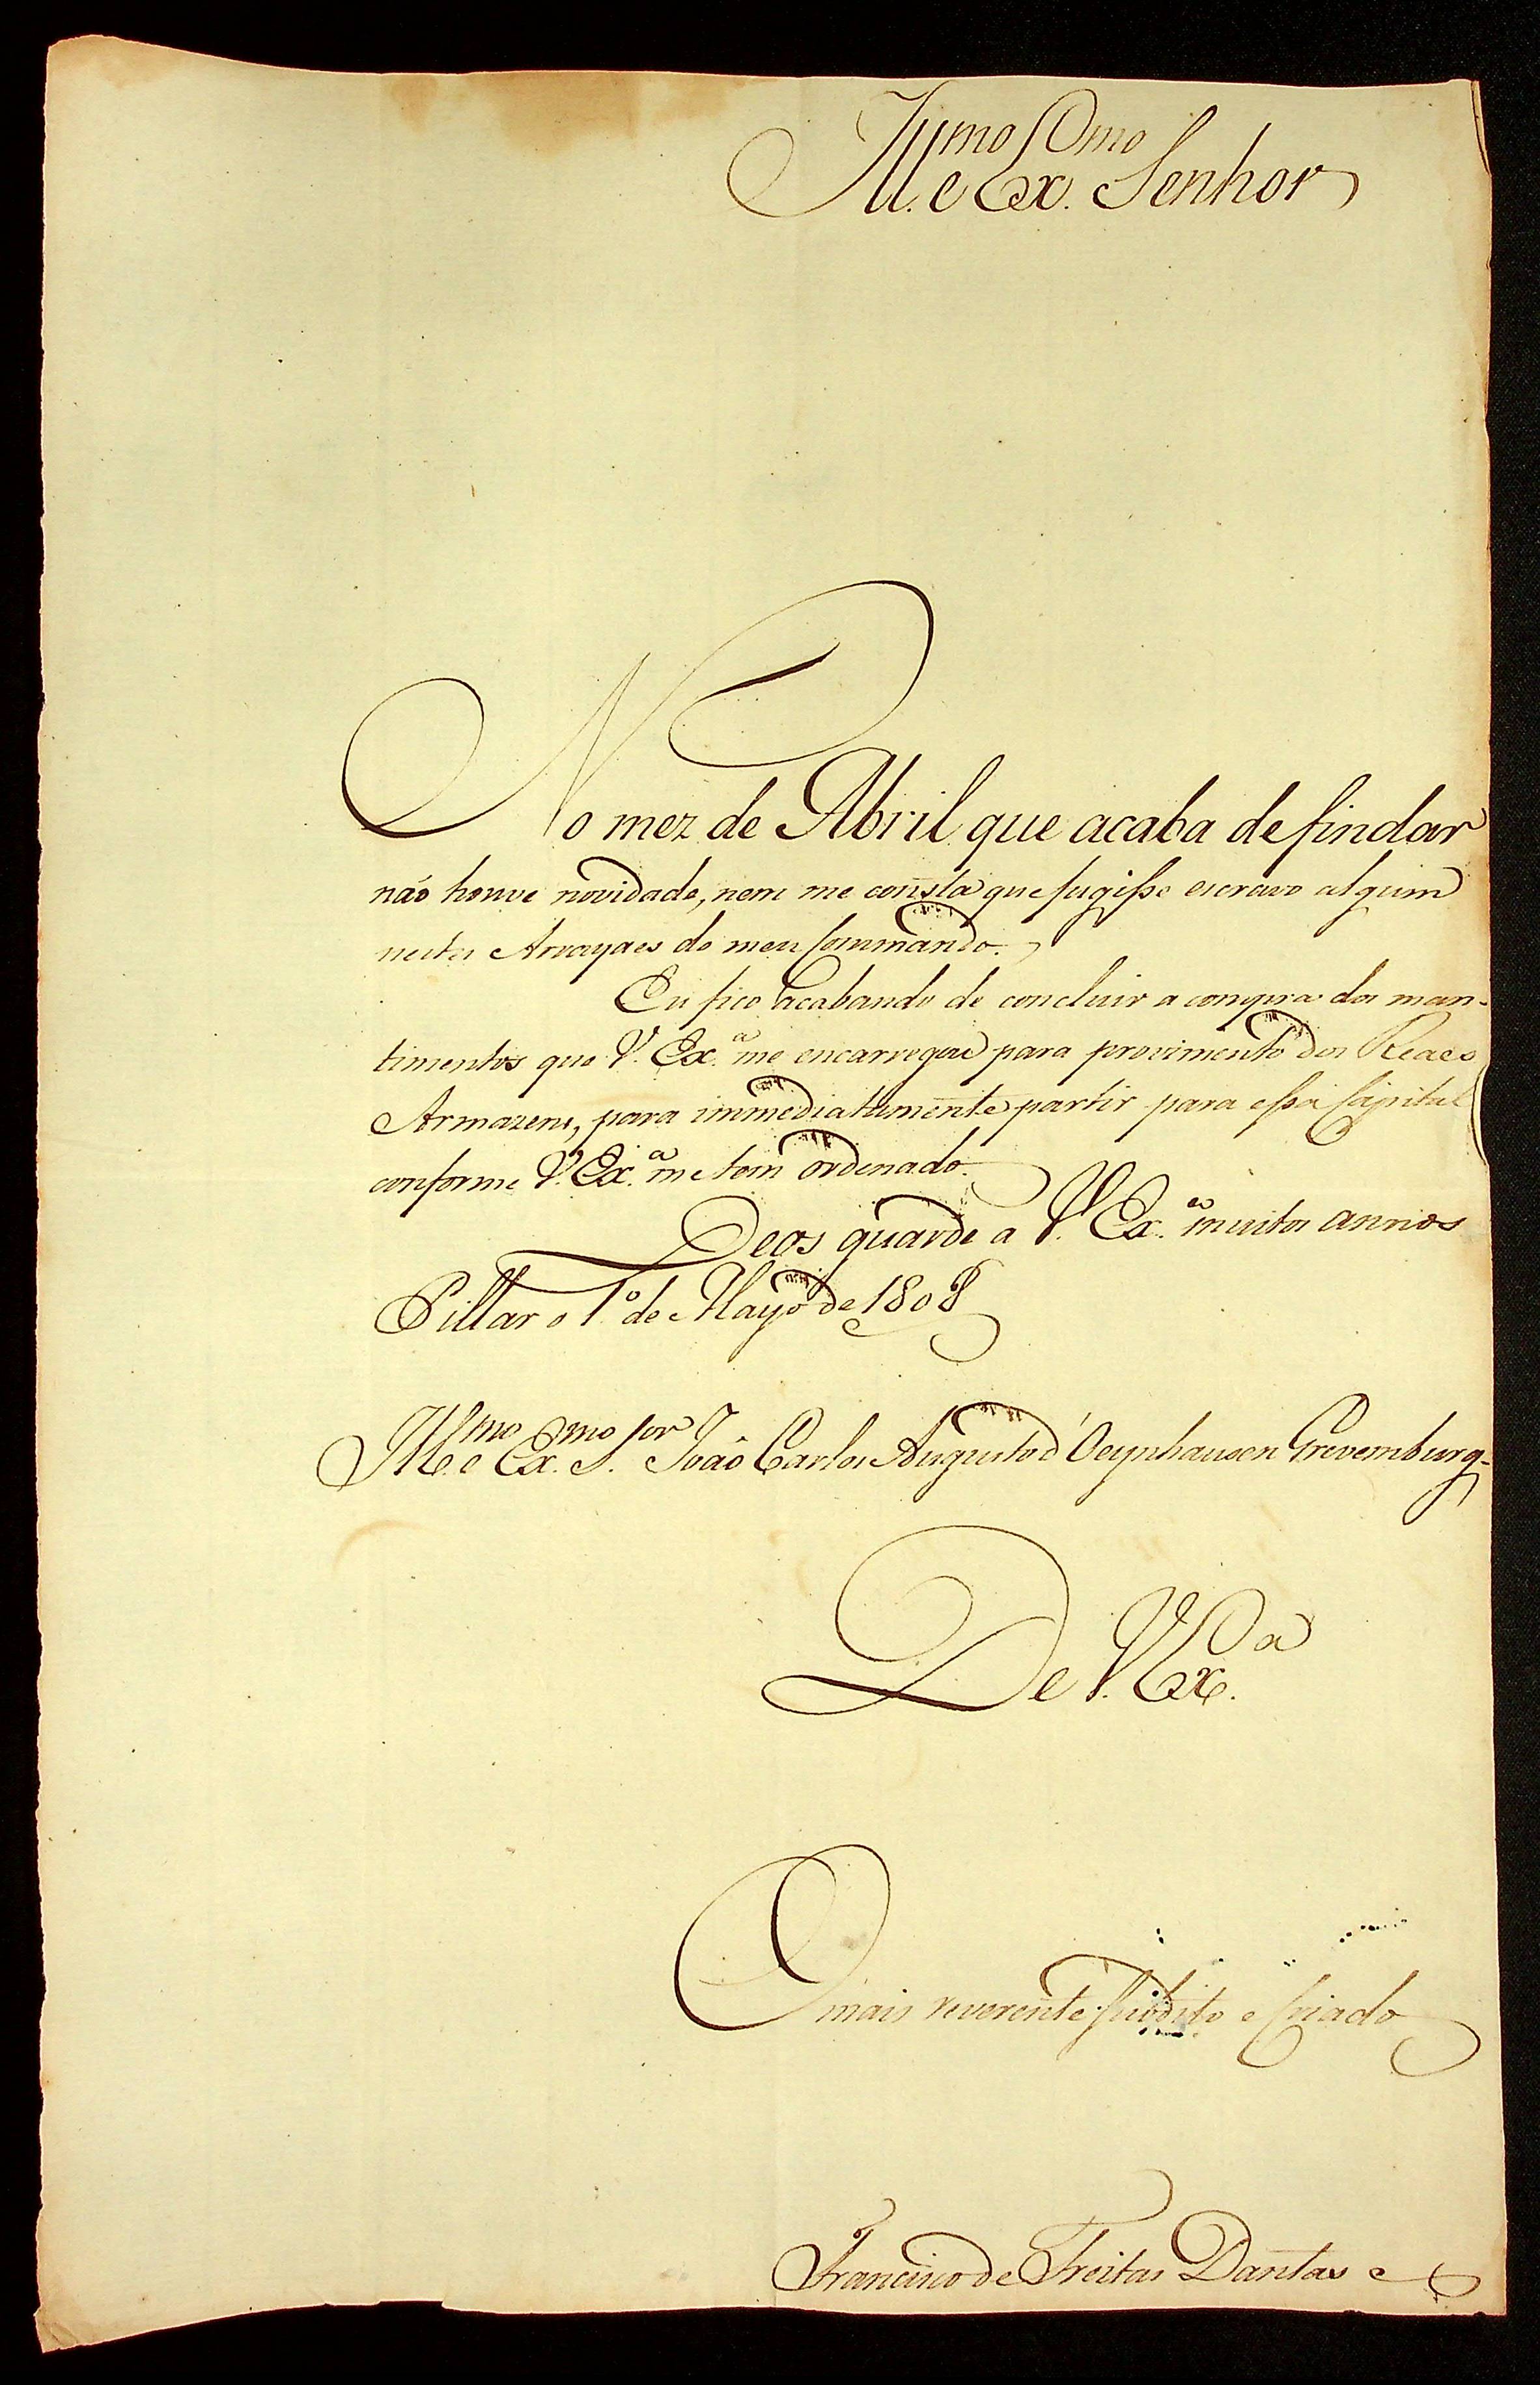 Ill.mo e Ex.mo Senhor
No mez de Abril que acaba de findar
não houve novidade, nem me consta que fugisse escravo algum
nestes Arrayaes do meu Commando.
Eu fico acabando de concluir a compra dos man-
timentos que V. Ex.a me encarregou para provimento dos Reaes
Armazens, para immediatamente partir para essa Capital
conforme V. Ex.a me tem ordenado.
Deos guarde a V. Ex.a muitos annos
Pillar o 1.o de Mayo de 1808
Ill.mo e Ex.mo S.or João Carlos Augusto d'Oeynhausen Grevemburg.
De V. Ex.a
O mais reverente subdito e Criado
Francisco de Freitas Dantas